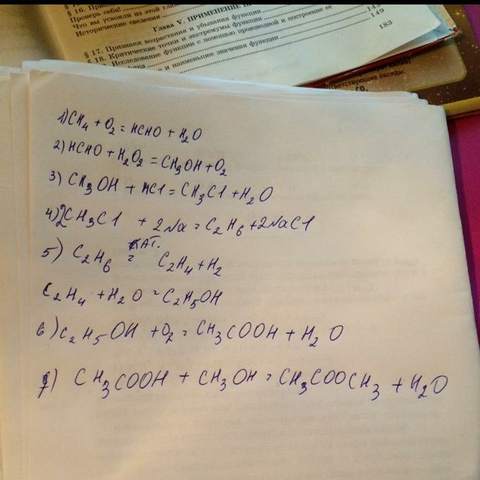 § 16. П
Проверь себя!
Что вы усвоили из этой гла
Исторические сведения
Глава V. ПРИМЕНЕНИЕ П
§ 17. Признаки возрастания и убывания функции
§ 18. Критические точки и экстремумы функции
Исследование функции с помощью производной и построение ее
и наименьшее значения функции
144
149
183
1) CH4 + O2 = HCHO + H2O
2) HCHO + H2O2 = CH3OH + O2
3) CH3OH + HCl = CH3Cl + H2O
4) 2CH3Cl + 2Na = C2H6 + 2NaCl
5) C2H6 КАТ. = C2H4 + H2
C2H4 + H2O = C2H5OH
6) C2H5OH + O2 = CH3COOH + H2O
7) CH3COOH + CH3OH = CH3COOCH3 + H2O